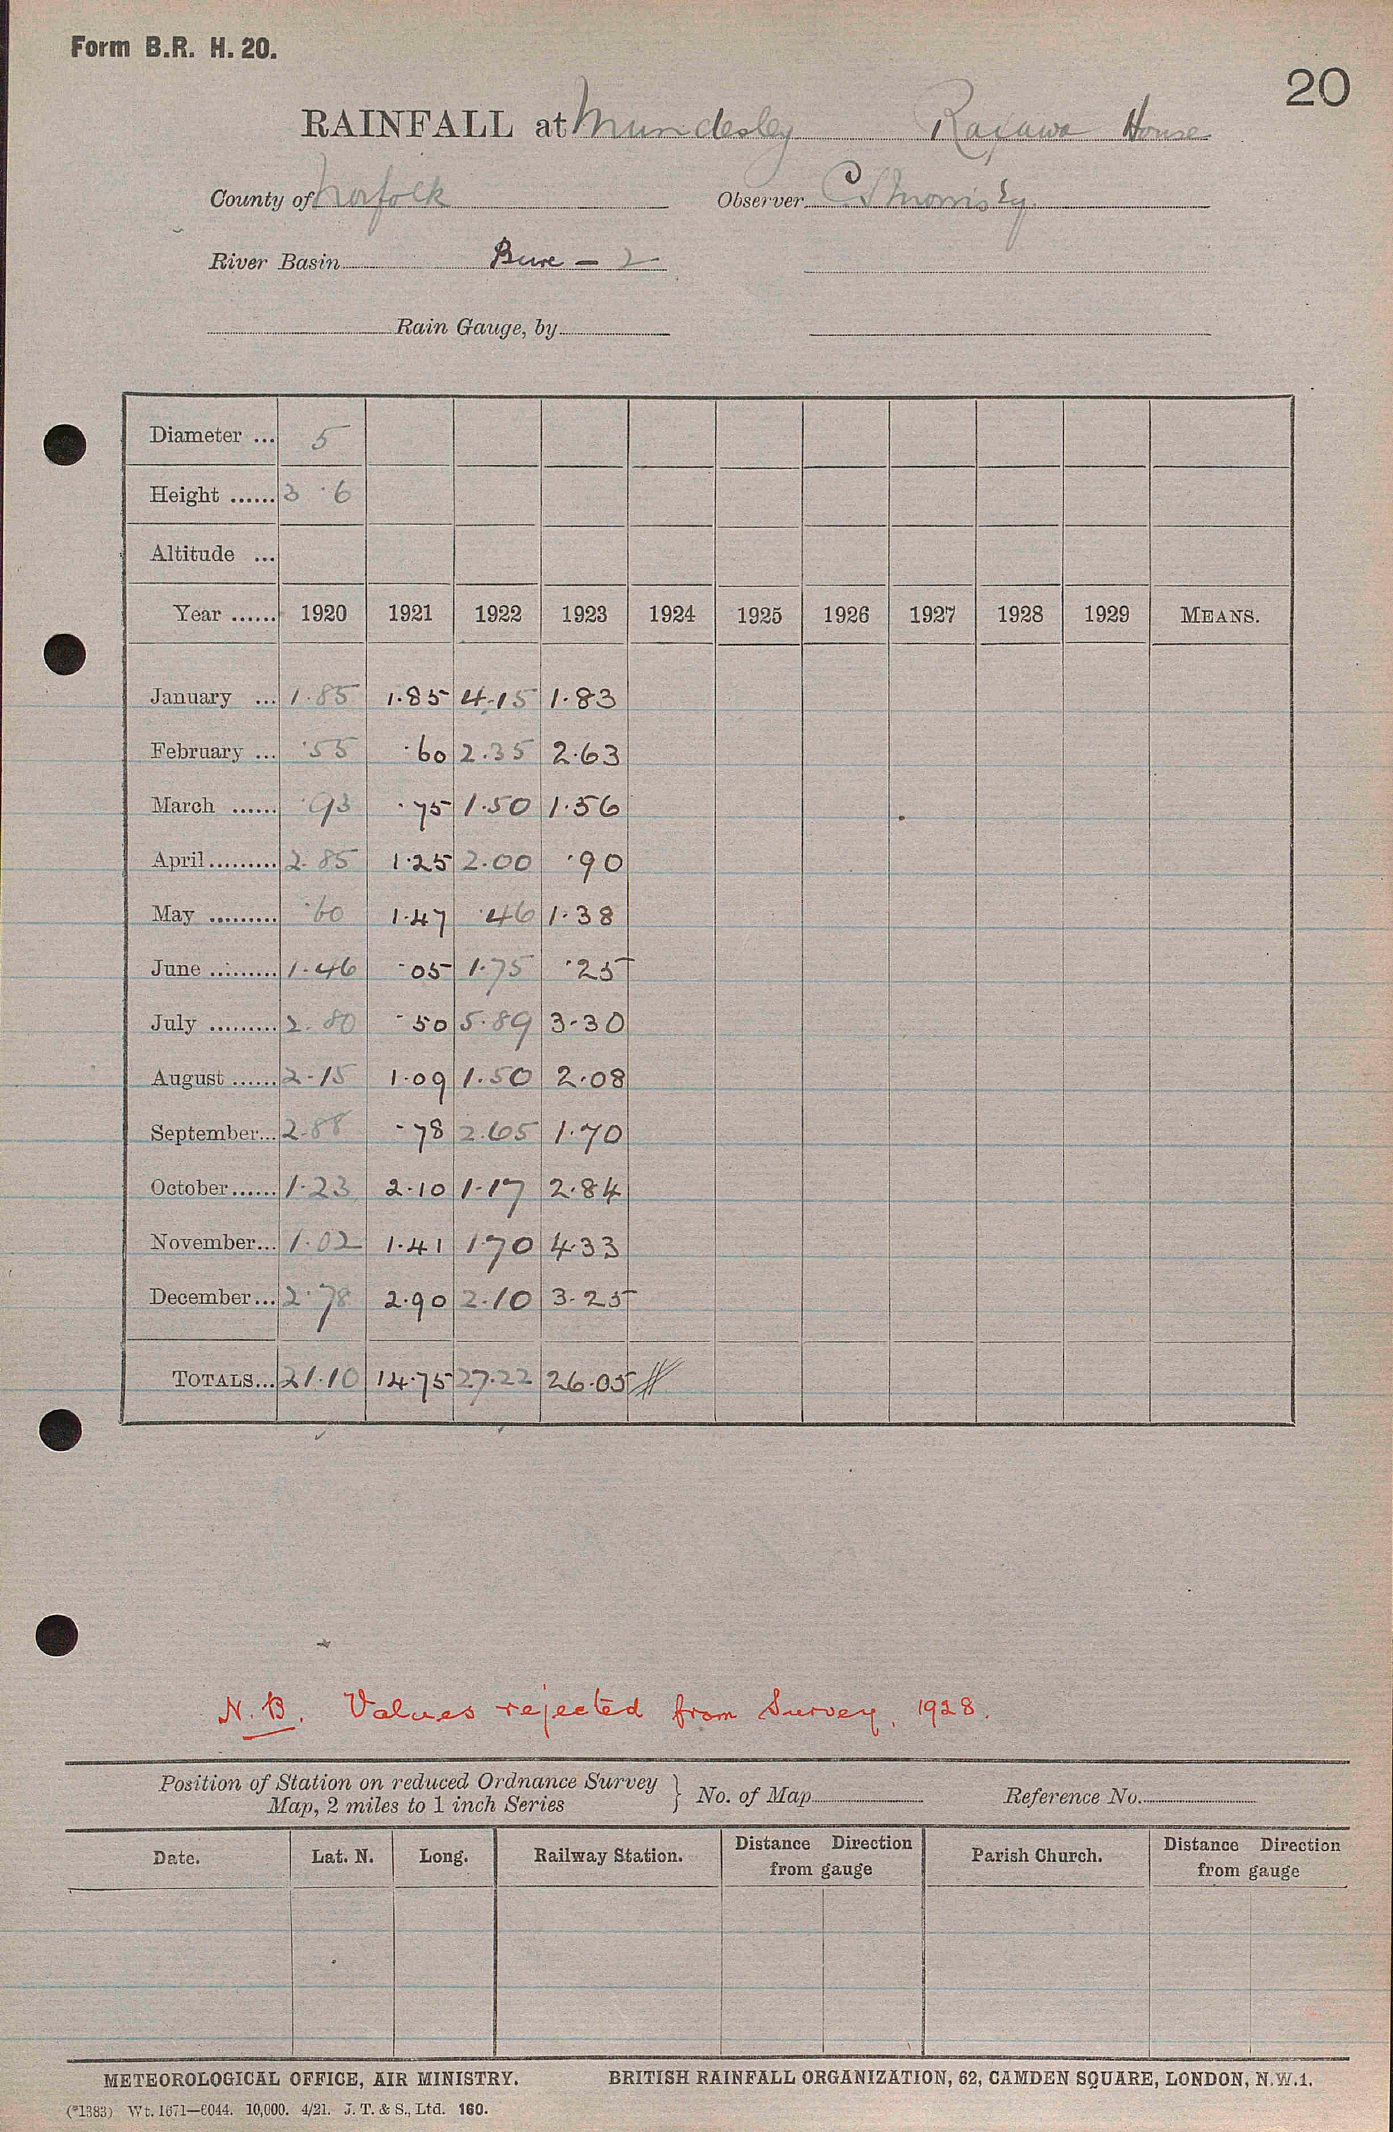 Form B.R. H. 20.
20
RAINFALL at Mundesley House
County of Norfolk Observer C
River Basin Bure - 2
Rain Gauge, by
Diameter ... 5
Height ...... 3 · 6
Altitude ...
Year ...... 1920 1921 1922 1923 1924 1925 1926 1927 1928 1929 MEANS.
January ... 1·85 1·85 4·15 1·83
February ... ·55 ·60 2·35 2·63
March ...... ·93 ·75 1·50 1·56
April ......... 2·85 1·25 2·00 ·90
May ......... ·60 1·47 ·46 1·38
June ......... 1·46 ·05 1·75 ·25
July ......... 2·80 ·50 5·89 3·30
August ...... 2·15 1·09 1·50 2·08
September... 2·88 ·78 2·65 1·70
October...... 1·23 2·10 1·17 2·84
November... 1·02 1·41 1·70 4·33
December... 2·78 2·90 2·10 3·25
TOTALS... 21·10 14·75 27·22 26·05
N.B. Values rejected from Survey, 1928.
Position of Station on reduced Ordnance Survey
Map, 2 miles to 1 inch Series } No. of Map Reference No.
Date. Lat. N. Long. Railway Station. Distance Direction from gauge Parish Church. Distance Direction from gauge
METEOROLOGICAL OFFICE, AIR MINISTRY. BRITISH RAINFALL ORGANIZATION, 62, CAMDEN SQUARE, LONDON, N.W.1.
(*1383) Wt. 1671—6044. 10,000. 4/21. J. T. & S., Ltd. 160.